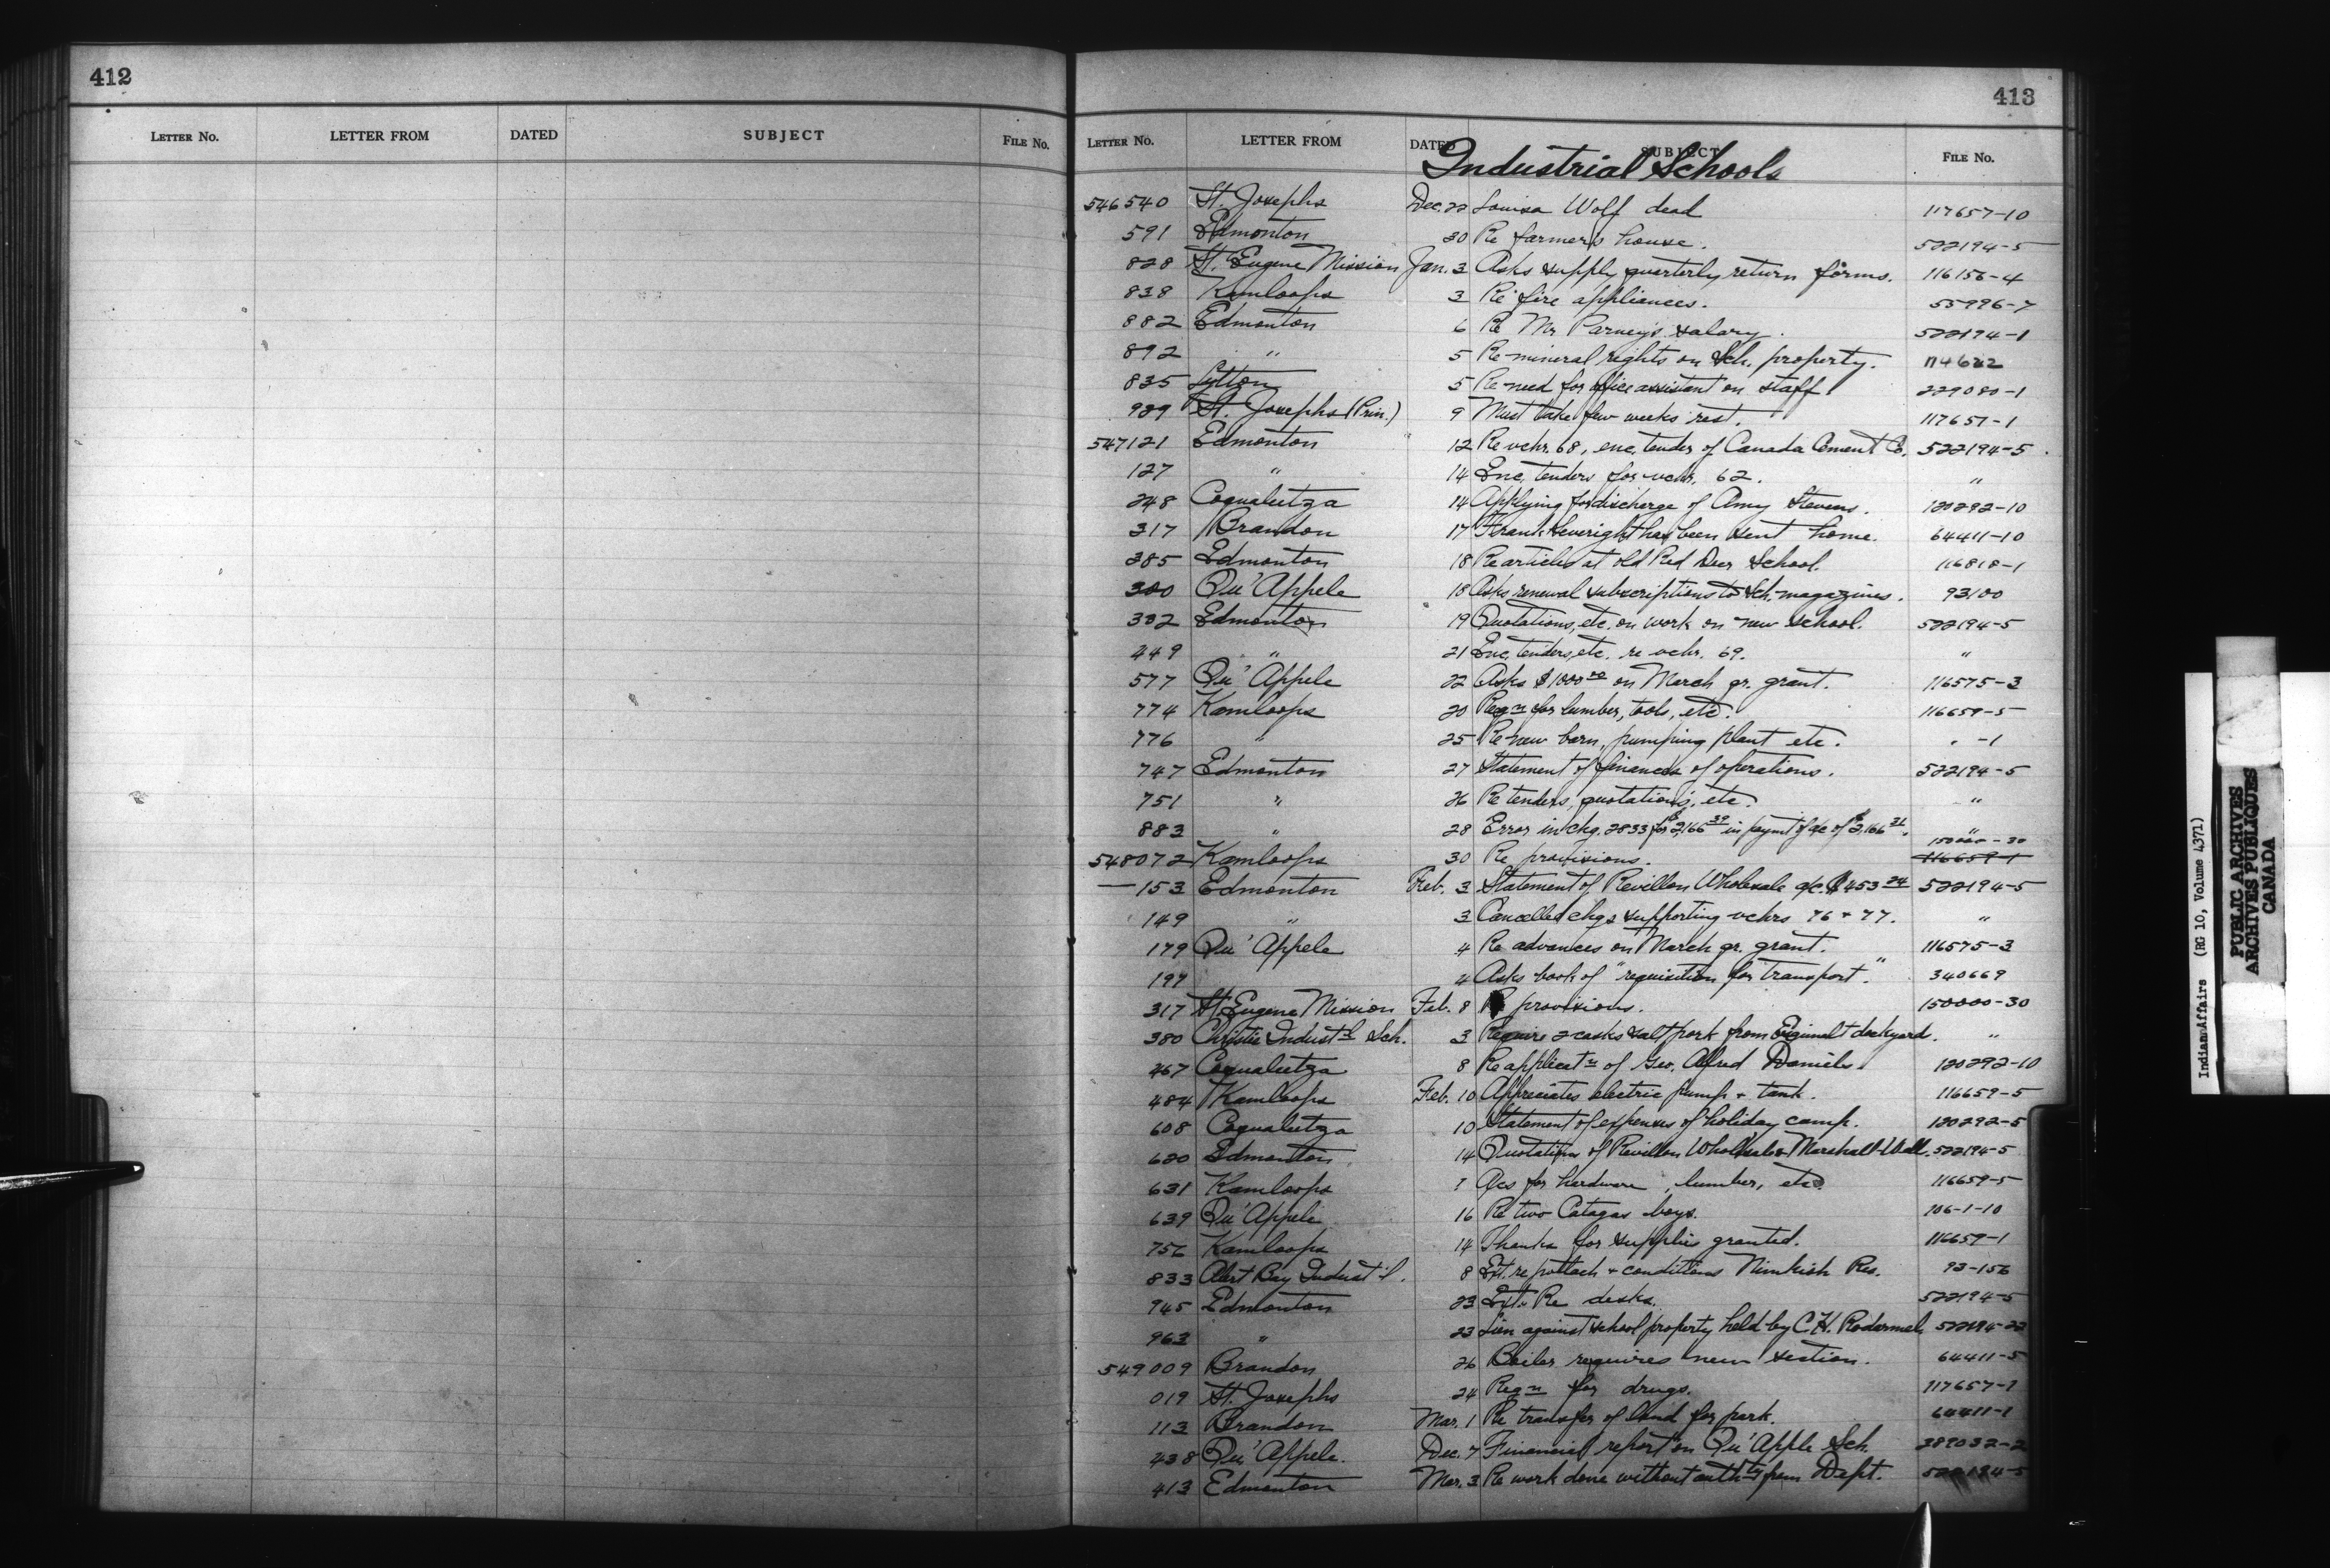 412
413
LETTER No. LETTER FROM DATED SUBJECT FILE No.
LETTER No. LETTER FROM DATED SUBJECT FILE No.
Industrial Schools
546540 St. Josephs Dec. 22 Louisa Wolf dead 117657-10
591 Edmonton 30 Re farmer's house. 522194-5
828 St. Eugene Mission Jan. 3 Asks supply quarterly return forms. 116156-4
838 Kamloops 3 Re fire appliances. 55996-7
882 Edmonton 6 Re Mr Parney's salary. 522194-1
892 " 5 Re mineral rights on Sch. property.
835 Lytton 5 Re need for office assistant on staff 229080-1
989 St. Josephs (Prin.) 9 Must take few weeks rest. 117657-1
547121 Edmonton 12 Re vchr. 68, enc. tender of Canada Cement Co. 522194-5
127 " 14 Enc. tenders for vchr. 62. "
248 Coqualeetza 14 Applying for discharge of Amy Stevens. 120292-10
317 Brandon 17 Frank Everight has been sent home. 64411-10
385 Edmonton 18 Re articles at old Red Deer School. 116818-1
300 Qu'Appele 18 Asks renewal subscriptions to Sch. magazines. 93100
302 Edmonton 19 Quotations, etc. on work on new school. 522194-5
449 " 21 Enc. tenders, etc. re vchr. 69. "
577 Qu'Appele 22 Asks $1000 00 on March qr. grant. 116575-3
774 Kamloops 20 Reqn for lumber, tools, etc. 116659-5
776 " 25 Re new barn, pumping plant etc. " -1
747 Edmonton 27 Statement of finances of operations. 522194-5
751 " 26 Re tenders, quotations, etc. "
883 " 28 Error in chq. 2833 for $2,166 39 in paymt of a/c of $2,166 31. "
548072 Kamloops 30 Re provisions. 150000-30 116659-1
—153 Edmonton Feb. 3 Statement of Revillon Wholesale a/c. $453 24 522194-5
149 " 3 Cancelled chqs supporting vchrs 76 + 77. "
179 Qu'Appele 4 Re advances on March qr. grant. 116575-3
197 4 Asks book of "requisition for transport." 340669
317 St. Eugene Mission Feb. 8 Re provisions. 150000-30
380 Christie Indust'l Sch. 3 Require 2 casks salt pork from Esquimalt dockyard. "
467 Coqualeetza 8 Re applicatn of Geo. Alfred Daniels 120292-10
484 Kamloops Feb. 10 Appreciates electric pump + tank. 116659-5
608 Coqualeetza 10 Statement of expenses of holiday camp. 120292-5
620 Edmonton 14 Quotations of Revillon Wholesale + Marshall-Well. 522194-5
631 Kamloops ? A/cs for hardware, lumber, etc. 116659-5
639 Qu'Appele 16 Re two Catagas boys. 106-1-10
756 Kamloops 14 Thanks for supplies granted. 116659-1
833 Alert Bay Indust'l. 8 Ext. re potlach + conditions Nimkish Res. 93-156
945 Edmonton 23 Ext. Re desks. 522194-5
963 " 23 Lien against school property held by C.H. 522194-22
549009 Brandon 26 Boiler requires new section. 64411-5
019 St. Josephs 24 Reqn for drugs. 117657-7
113 Brandon Mar. 1 Re transfer of land for park. 64411-1
438 Qu'Appele. Dec. 7 Financial report on Qu'Apple Sch. 289032-2
413 Edmonton Mar. 3 Re work done without authty from Dept. 522194-5
Indian Affairs (RG 10, Volume 4371)
PUBLIC ARCHIVES
ARCHIVES PUBLIQUES
CANADA